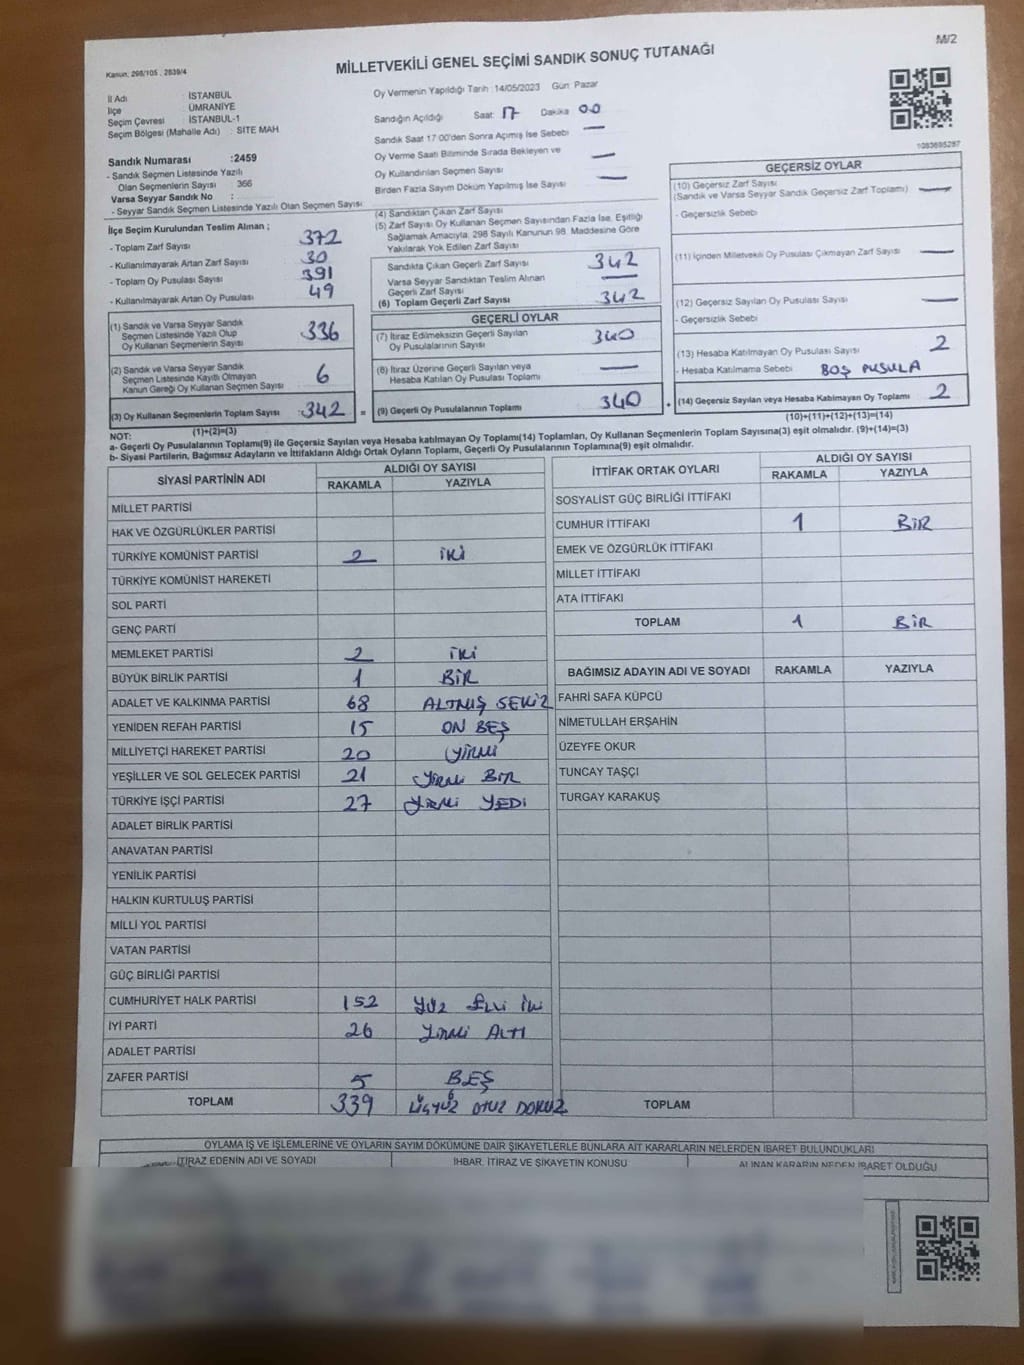 M/2
Kanun, 298/105 , 2839/4
MİLLETVEKİLİ GENEL SEÇİMİ SANDIK SONUÇ TUTANAĞI
İl Adı : İSTANBUL
İlçe : ÜMRANİYE
Seçim Çevresi : İSTANBUL-1
Seçim Bölgesi (Mahalle Adı) : SİTE MAH
Sandık Numarası :2459
- Sandık Seçmen Listesinde Yazılı
Olan Seçmenlerin Sayısı 366
Varsa Seyyar Sandık No :
- Seyyar Sandık Seçmen Listesinde Yazılı Olan Seçmen Sayısı
Oy Vermenin Yapıldığı Tarih :14/05/2023 Gün: Pazar
Sandığın Açıldığı Saat: 17 Dakika 00
Sandık Saat 17:00'den Sonra Açımış İse Sebebi —
Oy Verme Saati Bitiminde Sırada Bekleyen ve
Oy Kullandırılan Seçmen Sayısı —
Birden Fazla Sayım Döküm Yapılmış İse Sayısı —
1083695287
İlçe Seçim Kurulundan Teslim Alınan ;
- Toplam Zarf Sayısı 372
- Kullanılmayarak Artan Zarf Sayısı 30
- Toplam Oy Pusulası Sayısı 391
- Kullanılmayarak Artan Oy Pusulası 49
(1) Sandık ve Varsa Seyyar Sandık
Seçmen Listesinde Yazılı Olup
Oy Kullanan Seçmenlerin Sayısı 336
(2) Sandık ve Varsa Seyyar Sandık
Seçmen Listesinde Kayıtlı Olmayan
Kanun Gereği Oy Kullanan Seçmen Sayısı 6
(3) Oy Kullanan Seçmenlerin Toplam Sayısı 342 =
(1)+(2)=(3)
(4) Sandıktan Çıkan Zarf Sayısı
(5) Zarf Sayısı Oy Kullanan Seçmen Sayısından Fazla İse, Eşitliği
Sağlamak Amacıyla, 298 Sayılı Kanunun 98. Maddesine Göre
Yakılarak Yok Edilen Zarf Sayısı
Sandıkta Çıkan Geçerli Zarf Sayısı 342
Varsa Seyyar Sandıktan Teslim Alınan
Geçerli Zarf Sayısı —
(6) Toplam Geçerli Zarf Sayısı 342
GEÇERLİ OYLAR
(7) İtiraz Edilmeksizin Geçerli Sayılan
Oy Pusulalarının Sayısı 340
(8) İtiraz Üzerine Geçerli Sayılan veya
Hesaba Katılan Oy Pusulası Toplamı —
(9) Geçerli Oy Pusulalarının Toplamı 340
GEÇERSİZ OYLAR
(10) Geçersiz Zarf Sayısı
(Sandık ve Varsa Seyyar Sandık Geçersiz Zarf Toplamı) —
- Geçersizlik Sebebi
(11) İçinden Milletvekili Oy Pusulası Çıkmayan Zarf Sayısı —
(12) Geçersiz Sayılan Oy Pusulası Sayısı —
- Geçersizlik Sebebi
(13) Hesaba Katılmayan Oy Pusulası Sayısı 2
- Hesaba Katılmama Sebebi BOŞ PUSULA
(14) Geçersiz Sayılan veya Hesaba Katılmayan Oy Toplamı 2
(10)+(11)+(12)+(13)=(14)
NOT:
a- Geçerli Oy Pusulalarının Toplamı(9) ile Geçersiz Sayılan veya Hesaba katılmayan Oy Toplamı(14) Toplamları, Oy Kullanan Seçmenlerin Toplam Sayısına(3) eşit olmalıdır. (9)+(14)=(3)
b- Siyasi Partilerin, Bağımsız Adayların ve İttifakların Aldığı Ortak Oyların Toplamı, Geçerli Oy Pusulalarının Toplamına(9) eşit olmalıdır.
SİYASİ PARTİNİN ADI ALDIĞI OY SAYISI
RAKAMLA YAZIYLA
MİLLET PARTİSİ
HAK VE ÖZGÜRLÜKLER PARTİSİ
TÜRKİYE KOMÜNİST PARTİSİ 2 İKİ
TÜRKİYE KOMÜNİST HAREKETİ
SOL PARTİ
GENÇ PARTİ
MEMLEKET PARTİSİ 2 İKİ
BÜYÜK BİRLİK PARTİSİ 1 BİR
ADALET VE KALKINMA PARTİSİ 68 ALTMIŞ SEKİZ
YENİDEN REFAH PARTİSİ 15 ON BEŞ
MİLLİYETÇİ HAREKET PARTİSİ 20 YİRMİ
YEŞİLLER VE SOL GELECEK PARTİSİ 21 YİRMİ BİR
TÜRKİYE İŞÇİ PARTİSİ 27 YİRMİ YEDİ
ADALET BİRLİK PARTİSİ
ANAVATAN PARTİSİ
YENİLİK PARTİSİ
HALKIN KURTULUŞ PARTİSİ
MİLLİ YOL PARTİSİ
VATAN PARTİSİ
GÜÇ BİRLİĞİ PARTİSİ
CUMHURİYET HALK PARTİSİ 152 YÜZ ELLİ İKİ
İYİ PARTİ 26 YİRMİ ALTI
ADALET PARTİSİ
ZAFER PARTİSİ 5 BEŞ
TOPLAM 339 ÜÇYÜZ OTUZ DOKUZ
İTTİFAK ORTAK OYLARI ALDIĞI OY SAYISI
RAKAMLA YAZIYLA
SOSYALİST GÜÇ BİRLİĞİ İTTİFAKI
CUMHUR İTTİFAKI 1 BİR
EMEK VE ÖZGÜRLÜK İTTİFAKI
MİLLET İTTİFAKI
ATA İTTİFAKI
TOPLAM 1 BİR
BAĞIMSIZ ADAYIN ADI VE SOYADI RAKAMLA YAZIYLA
FAHRİ SAFA KÜPCÜ
NİMETULLAH ERŞAHİN
ÜZEYFE OKUR
TUNCAY TAŞÇI
TURGAY KARAKUŞ
TOPLAM
OYLAMA İŞ VE İŞLEMLERİNE VE OYLARIN SAYIM DÖKÜMÜNE DAİR ŞİKAYETLERLE BUNLARA AİT KARARLARIN NELERDEN İBARET BULUNDUKLARI
İTİRAZ EDENİN ADI VE SOYADI İHBAR, İTİRAZ VE ŞİKAYETİN KONUSU ALINAN KARARIN NEDEN İBARET OLDUĞU